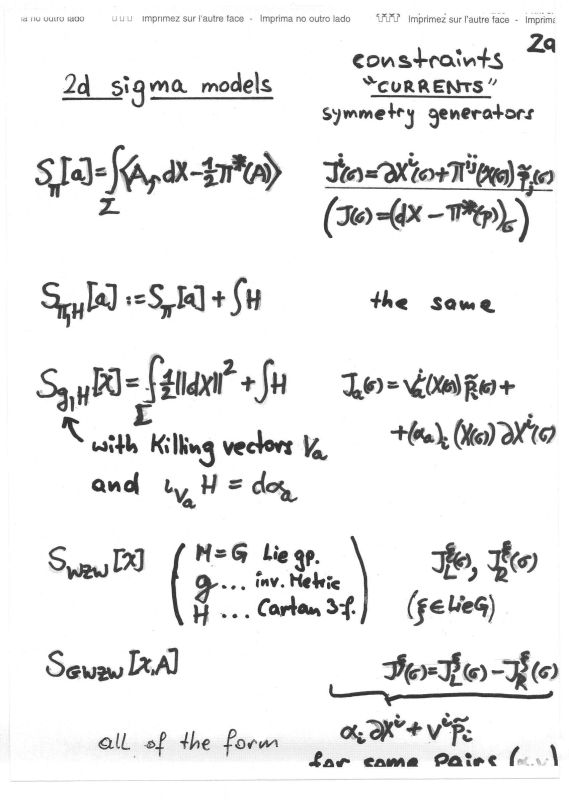 la no outro lado    Imprimez sur l'autre face - Imprima no outro lado    Imprimez sur l'autre face - Imprima
2a
2d sigma models
constraints
"CURRENTS"
symmetry generators
S_π[a] = ∫_Σ ⟨A, dX - 1/2 π^#(A)⟩
J^i(σ) = ∂X^i(σ) + π^{ij}(X(σ)) p̃_j(σ)
(J(σ) = (dX - π^#(p))_σ)
S_{π,H}[a] := S_π[a] + ∫H
the same
S_{g,H}[X] = ∫_Σ 1/2 ||dX||^2 + ∫H
J_a(σ) = v_a^i(X(σ)) p̃_i(σ) +
+ (α_a)_i (X(σ)) ∂X^i(σ)
with Killing vectors V_a
and ι_{V_a} H = dα_a
S_WZW [X]
( M = G Lie gp.
g ... inv. Metric
H ... Cartan 3-f. )
J_L^ξ(σ), J_R^ξ(σ)
(ξ ∈ LieG)
S_GWZW [X,A]
J^ξ(σ) = J_L^ξ(σ) - J_R^ξ(σ)
α_i ∂X^i + v^i p̃_i
all of the form
for some pairs (α,v)